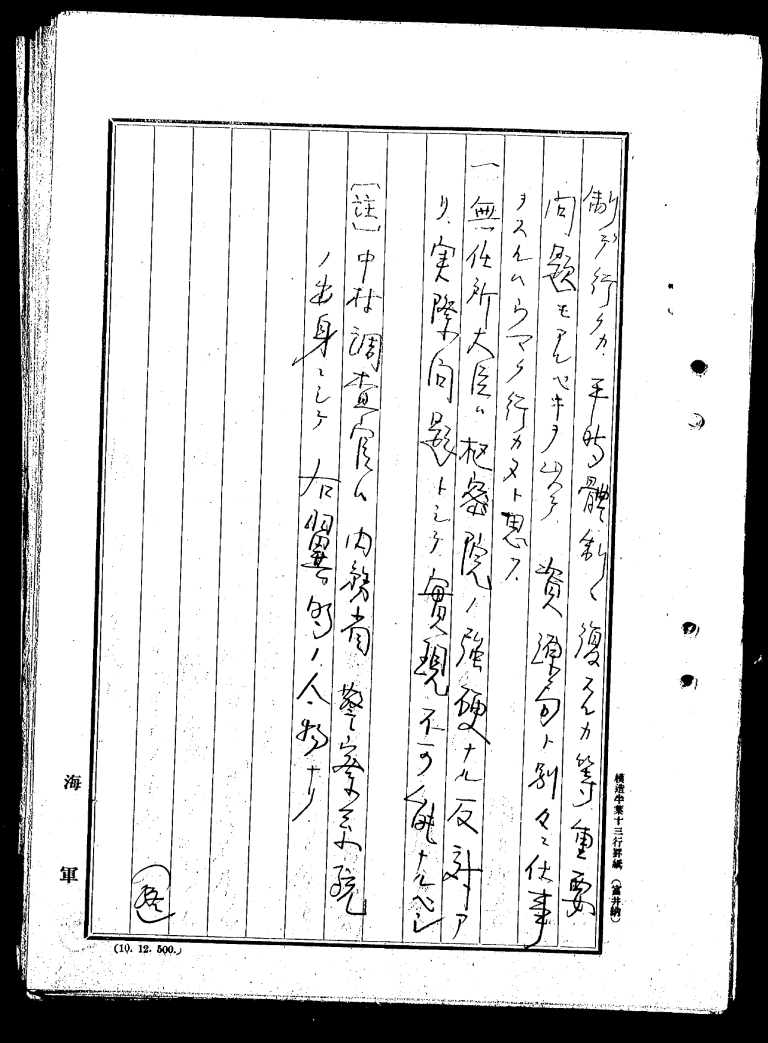 制デ行クカ、平時體制ニ復スルカ等重要
問題モアルベキヲ以テ、資源局ト別々ニ仕事
ヲスルハウマク行カヌト思フ、
一、無任所大臣ハ枢密院ノ強硬ナル反対ア
リ、実際問題トシテ實現不可能ナルベシ
〔註〕中村調査官ハ内務省警察系統
ノ出身ニシテ右翼的ノ人物ナリ
模造半葉十三行罫紙(富井納)
海軍
(10. 12. 500.)